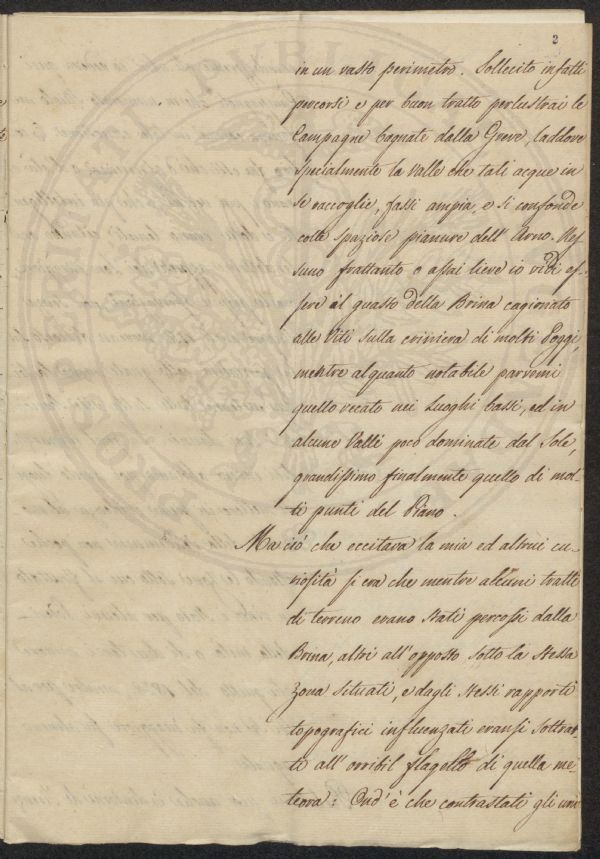 2
in un vasto perimetro. Sollecito infatti
percorsi e per buon tratto perlustrai le
Campagne bagnate dalla Greve, laddove
specialmente la Valle che tali acque in
se raccoglie, fassi ampia, e si confonde
colle spaziose pianure dell' Arno. Nes-
suno frattanto o assai lieve io vidi es-
sere il guasto della Brina cagionato
alle Viti sulla criniera di molti Poggi,
mentre alquanto notabile parvemi
quello recato nei Luoghi bassi, ed in
alcune Valli poco dominate dal Sole,
grandissimo finalmente quello di mol-
ti punti del Piano.
Ma ciò che eccitava la mia ed altrui cu-
riosità si era che mentre alcuni tratti
di terreno erano stati percossi dalla
Brina, altri all' opposto sotto la stessa
Zona situati, e dagli stessi rapporti
topografici influenzati eransi sottrat-
ti all' orribil flagello di quella me-
teora: Ond' è che contrastati gli uni